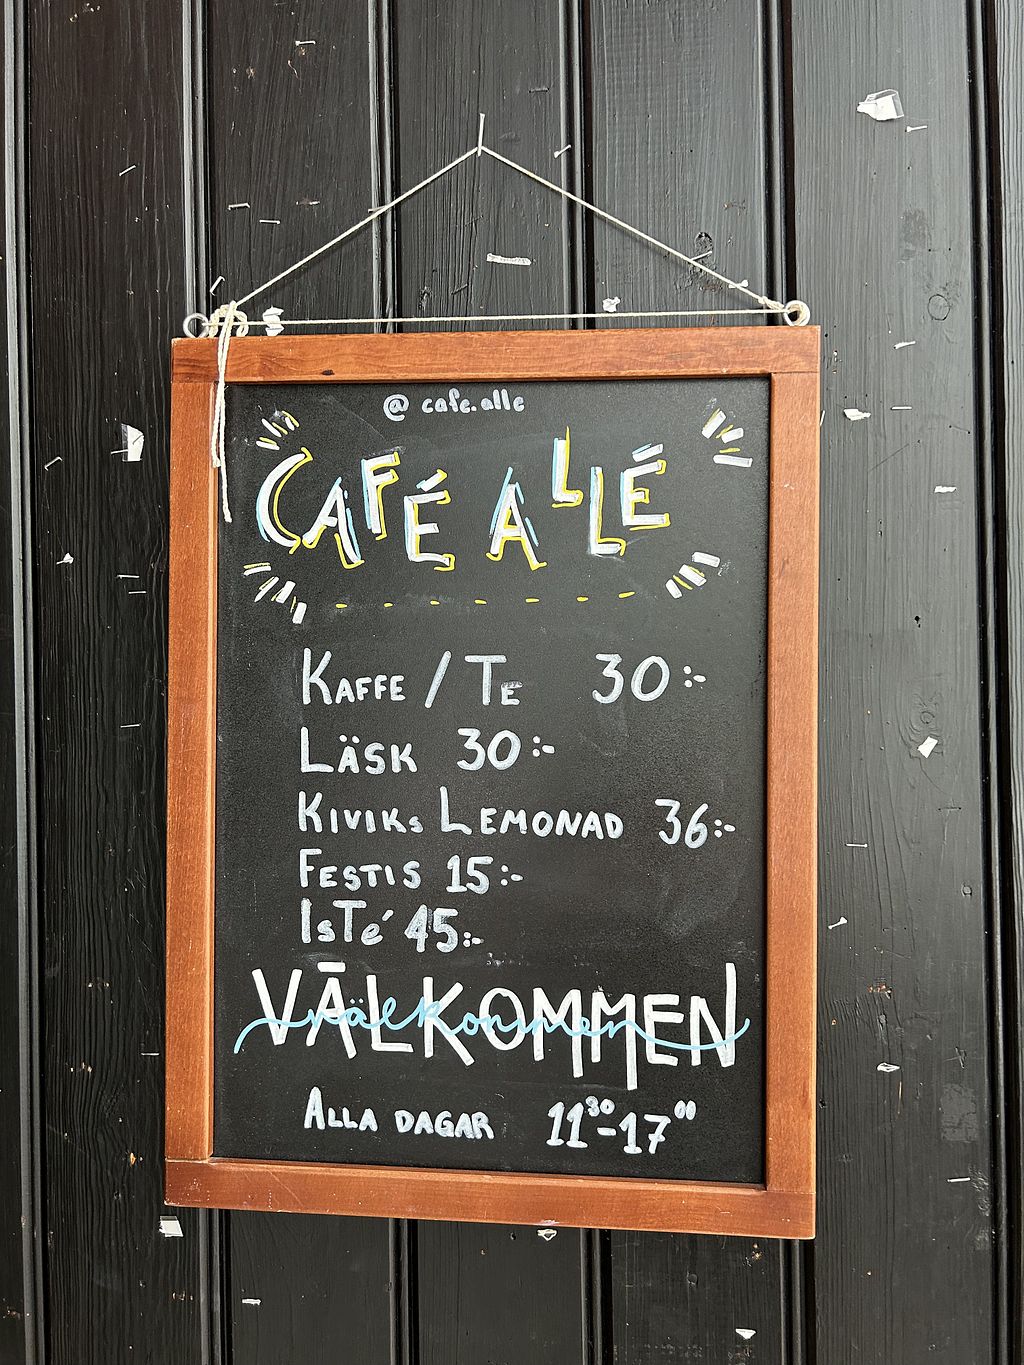 @ cafe.alle
CAFÉ ALLÉ
KAFFE / TE 30:-
LÄSK 30:-
KIVIKs LEMONAD 36:-
FESTIS 15:-
IsTé 45:-
VÄLKOMMEN
välkommen
ALLA DAGAR 11³⁰-17⁰⁰